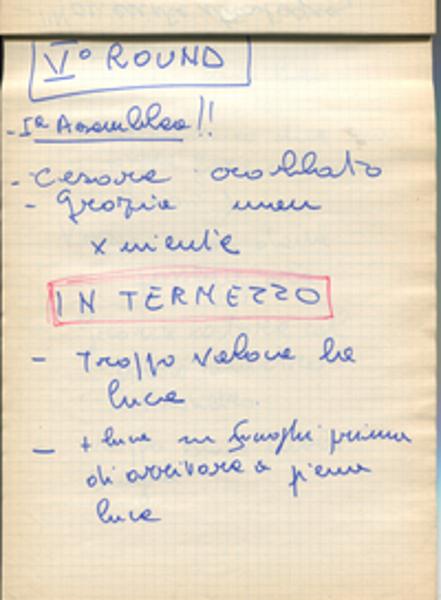 V° ROUND
- Iª Assemblea!!
- Cesare arrabbiato
- Grazie
x niente
INTERMEZZO
- Troppo veloce la
luce
- + luce su funghi prima
di arrivare a piena
luce